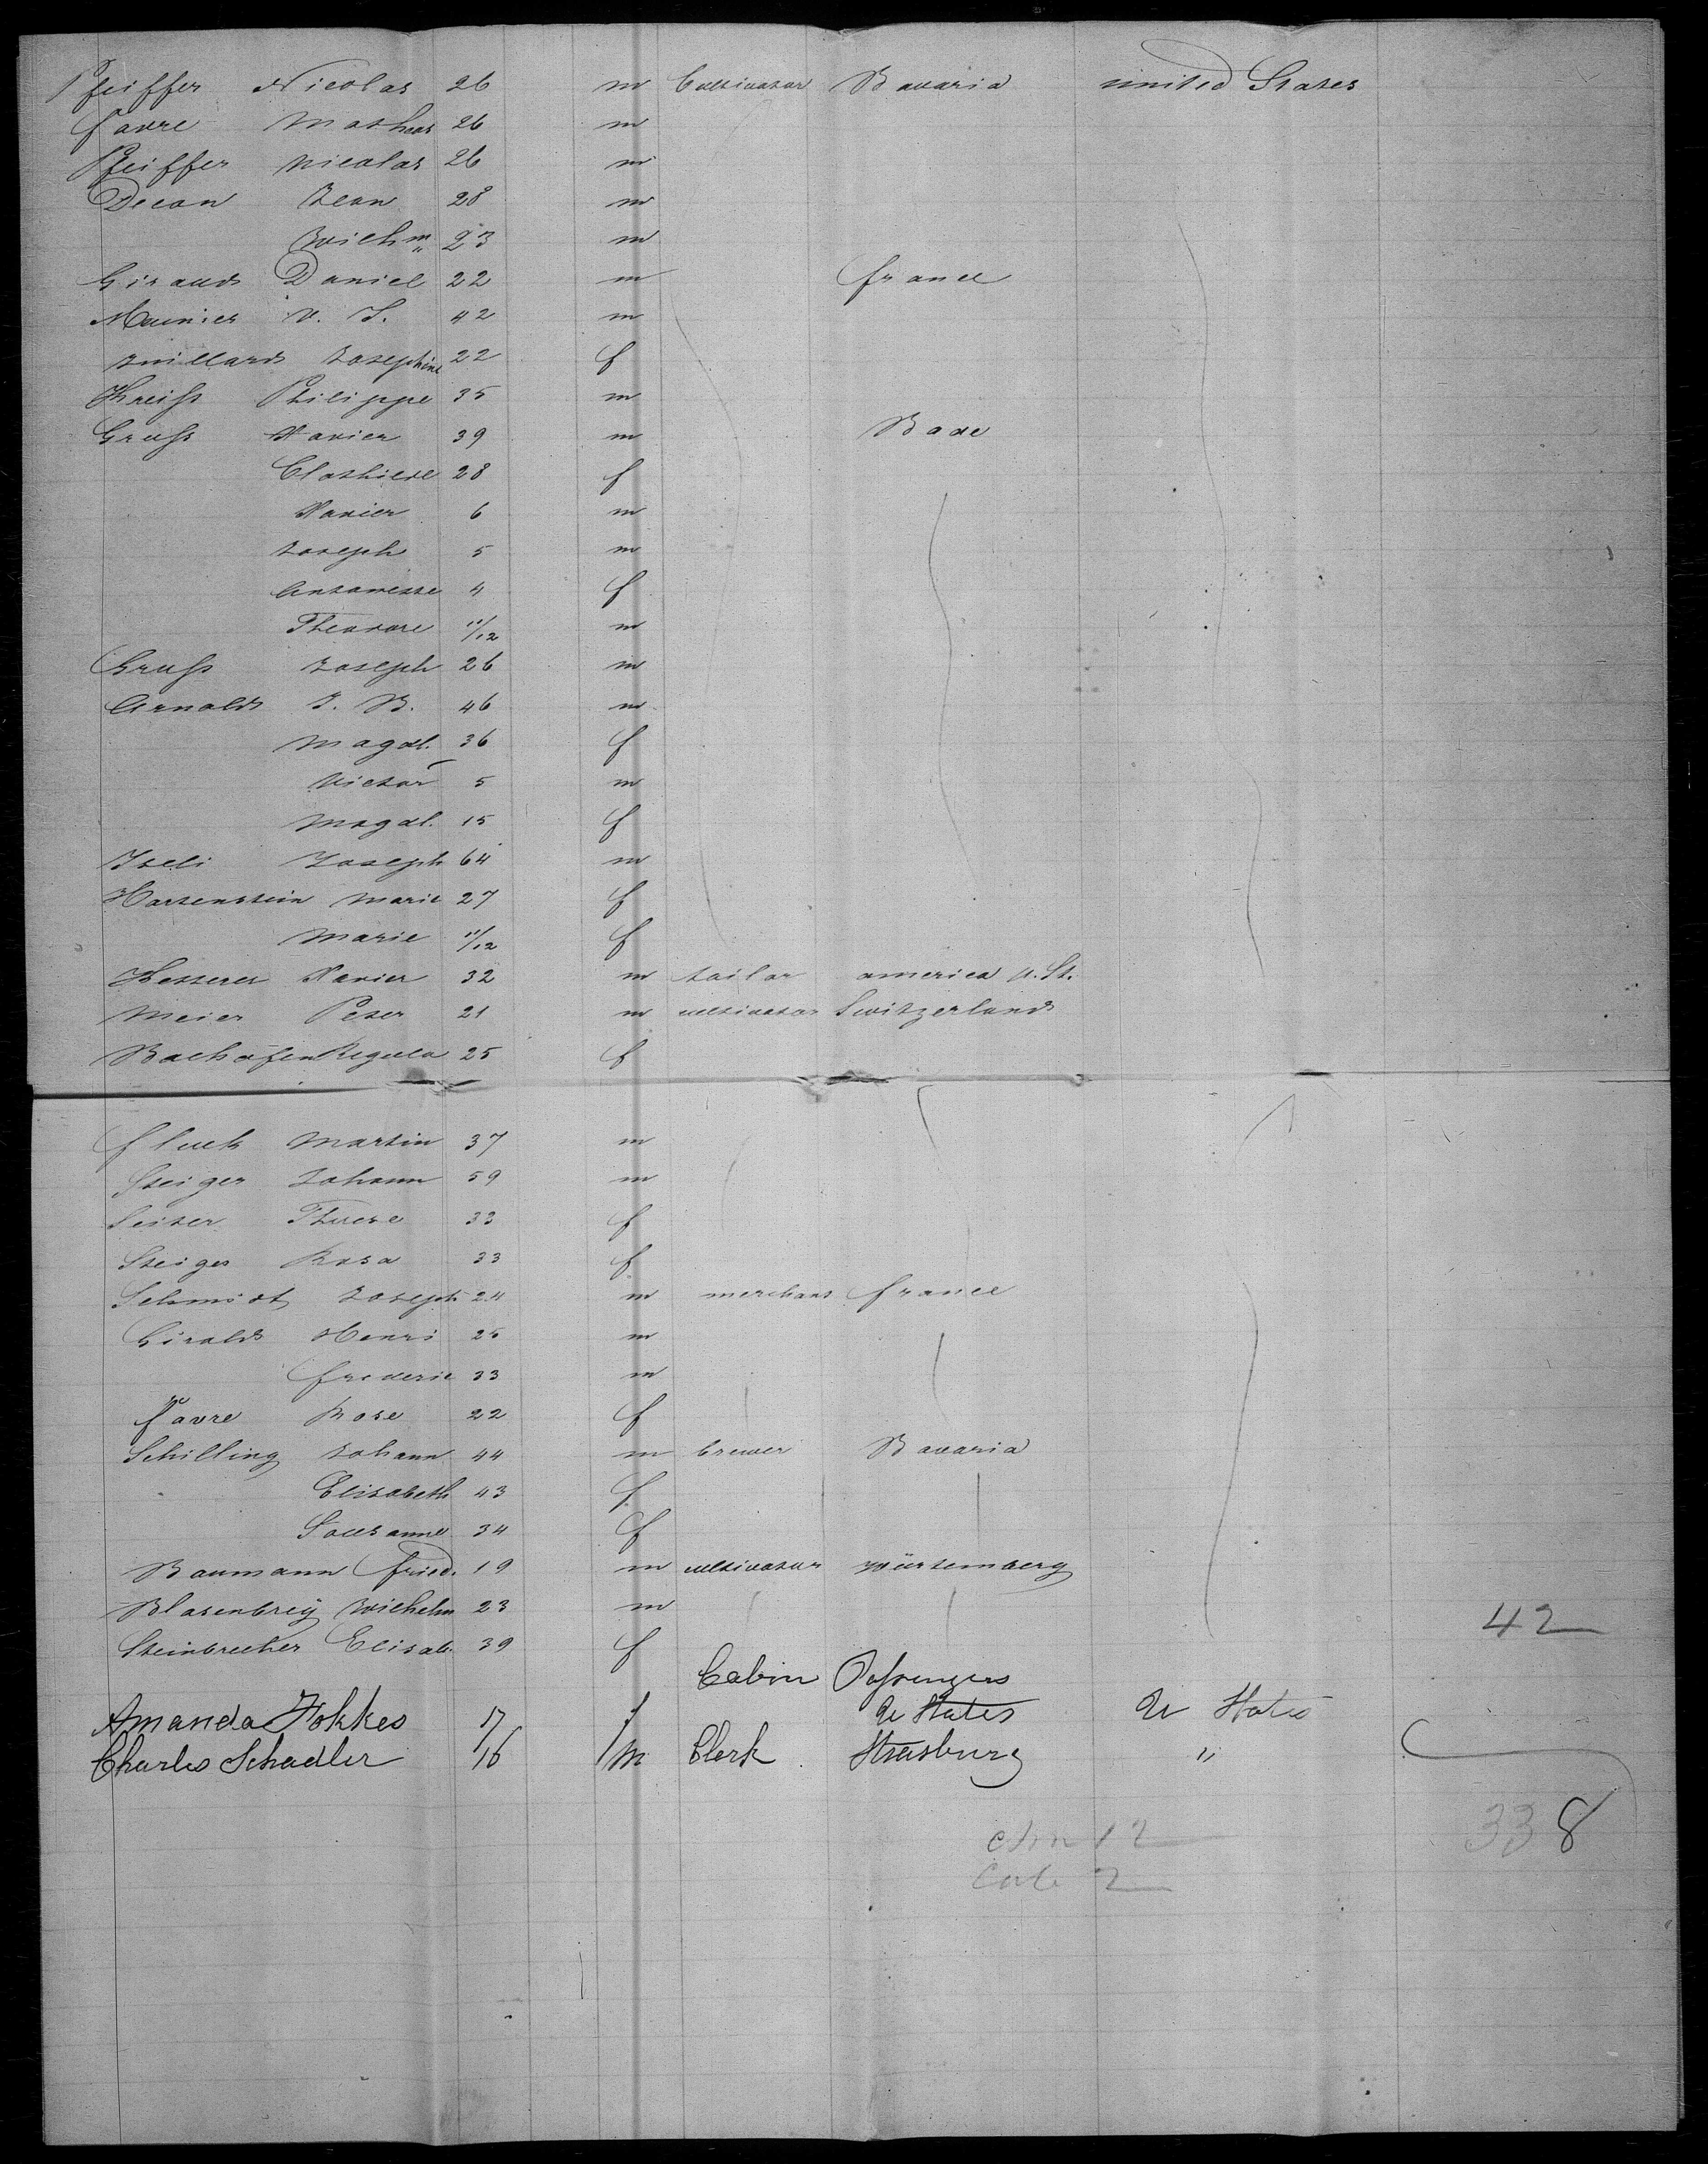 Pfeiffer Nicolas 26 m Cultivator Bavaria united States
Favre Matheas 26 m
Pfeiffer Nicolas 26 m
Decon Jean 28 m
Wilhm 23 m
Giraud Daniel 22 m France
Meunier V. J. 42 m
Josephine 22 f
Kreiss Philippe 35 m
Gruss Xavier 39 m Bade
28 f
Xavier 6 m
Joseph 5 m
Antoinette 4 f
Theodore 11/12 m
Gruss Joseph 26 m
Arnold J. B. 46 m
Magdl. 36 f
Victor 5 m
Magdl. 15 f
Iseli Joseph 64 m
Hartenstein Marie 27 f
Marie 11/12 f
Hesserer Xavier 32 m tailor america U. St.
Meier Peter 21 m cultivator Switzerland
Bachofen Regula 25 f
Fluck Martin 37 m
Steiger Johann 59 m
Seiter Therese 33 f
Steiger Rosa 33 f
Schmidt Joseph 24 m merchant France
Girald Henri 25 m
Frederic 33 m
Favre Rose 22 f
Schilling Johann 44 m brewer Bavaria
Elisabeth 43 f
Sousanne 34 f
Baumann Fried. 19 m cultivator Würtemberg
Blasenbrey Wilhelm 23 m
42
Steinbrecher Elisab. 39 f
Cabin Passengers
Amanda Fokkes 17 f U States U States
Charles Schadler 16 m Clerk Strasburg "
338
12
Cab 2